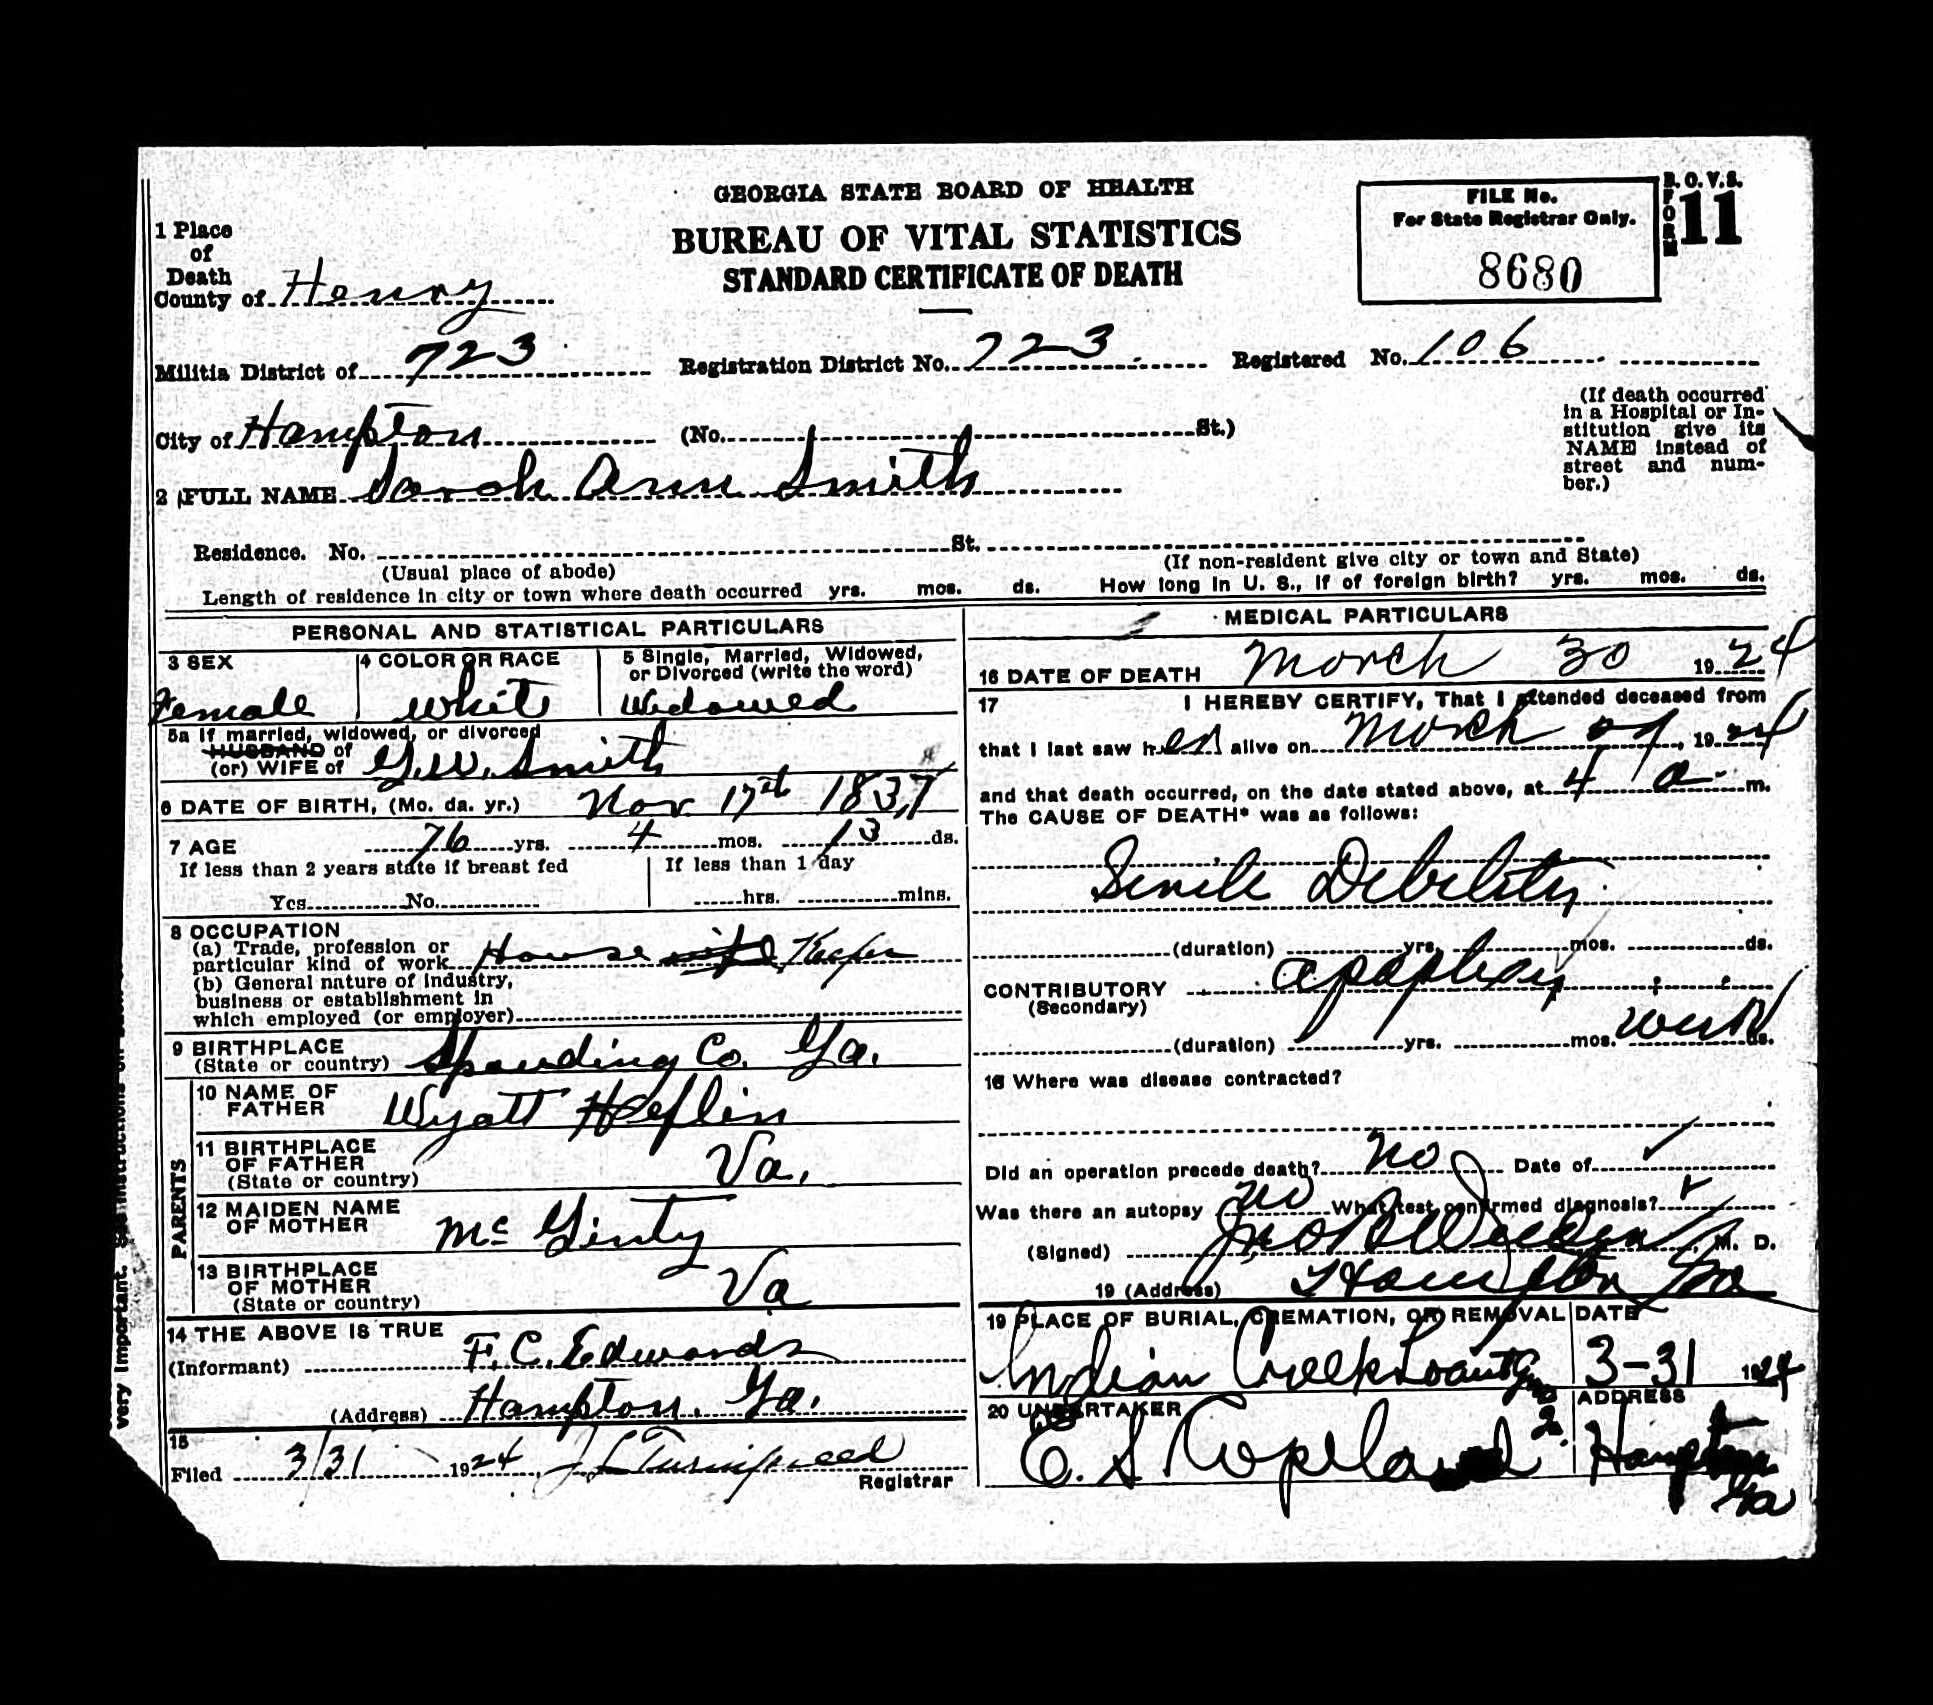 GEORGIA STATE BOARD OF HEALTH
BUREAU OF VITAL STATISTICS
STANDARD CERTIFICATE OF DEATH
FILE No.
For State Registrar Only.
8680
B. O. V. S.
FORM 11
1 Place
of
Death
County of Henry
Militia District of 723 Registration District No. 723 Registered No. 106
City of Hampton (No. St.)
(If death occurred
in a Hospital or In-
stitution give its
NAME instead of
street and num-
ber.)
2 FULL NAME Sarah Ann Smith
Residence. No. St.
(Usual place of abode) (If non-resident give city or town and State)
Length of residence in city or town where death occurred yrs. mos. ds. How long in U. S., if of foreign birth? yrs. mos. ds.
PERSONAL AND STATISTICAL PARTICULARS
3 SEX 4 COLOR OR RACE 5 Single, Married, Widowed,
or Divorced (write the word)
Female White Widowed
5a If married, widowed, or divorced
HUSBAND of
(or) WIFE of G.W. Smith
6 DATE OF BIRTH, (Mo. da. yr.) Nov. 17th 1837
7 AGE 76 yrs. 4 mos. 13 ds.
If less than 2 years state if breast fed If less than 1 day
Yes No hrs. mins.
8 OCCUPATION
(a) Trade, profession or
particular kind of work House wife Keeper
(b) General nature of industry,
business or establishment in
which employed (or employer)
9 BIRTHPLACE
(State or country) Spauding Co. Ga.
PARENTS
10 NAME OF
FATHER Wyatt Heflin
11 BIRTHPLACE
OF FATHER
(State or country) Va.
12 MAIDEN NAME
OF MOTHER McGinty
13 BIRTHPLACE
OF MOTHER
(State or country) Va
14 THE ABOVE IS TRUE
(Informant) F. C. Edwards
(Address) Hampton, Ga.
15
Filed 3/31 1924, J L Turnipseed
Registrar
MEDICAL PARTICULARS
16 DATE OF DEATH March 30 1924
17 I HEREBY CERTIFY, That I attended deceased from
that I last saw her alive on March 29, 1924
and that death occurred, on the date stated above, at 4 a. m.
The CAUSE OF DEATH* was as follows:
Senile Debility
(duration) yrs. mos. ds.
CONTRIBUTORY apoplexy
(Secondary)
(duration) yrs. mos. week ds.
18 Where was disease contracted?
Did an operation precede death? No Date of
Was there an autopsy no What test confirmed diagnosis?
(Signed) Jno M. D.
19 (Address) Hampton Ga
19 PLACE OF BURIAL, CREMATION, OR REMOVAL DATE
Indian Creek 3-31 1924
20 UNDERTAKER ADDRESS
E. S. Copeland Hampton
Ga
very important. See instructions on